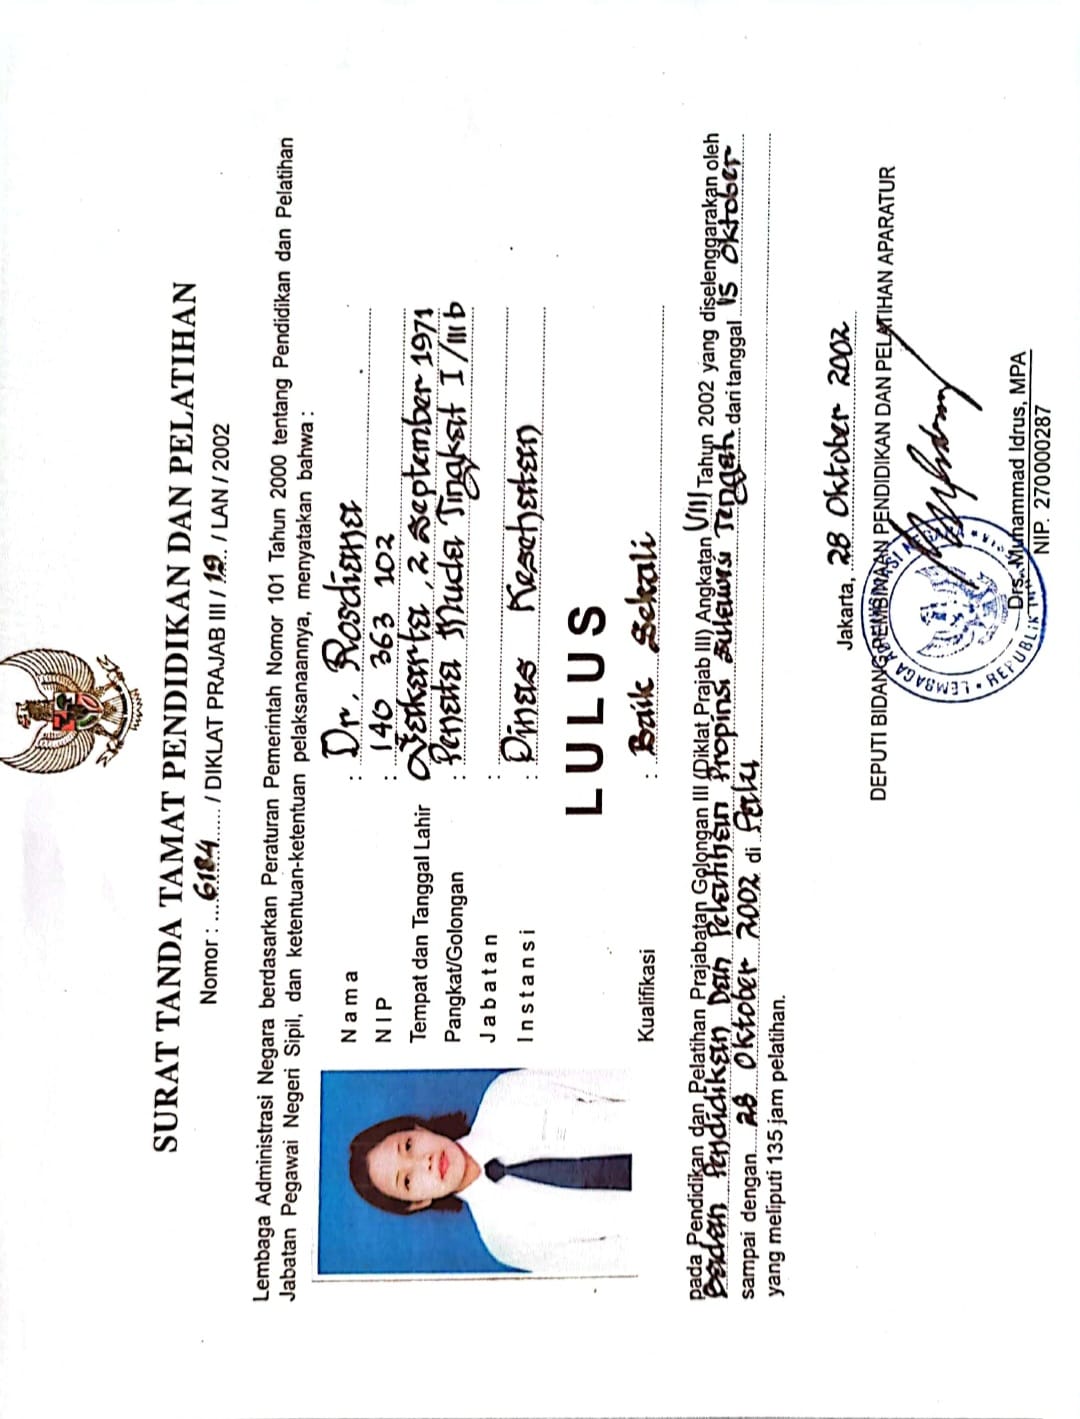 SURAT TANDA TAMAT PENDIDIKAN DAN PELATIHAN
Nomor : ...6184...... / DIKLAT PRAJAB III / 19.. / LAN / 2002
Lembaga Administrasi Negara berdasarkan Peraturan Pemerintah Nomor 101 Tahun 2000 tentang Pendidikan dan Pelatihan
Jabatan Pegawai Negeri Sipil, dan ketentuan-ketentuan pelaksanaannya, menyatakan bahwa :
Nama : Dr. Rosdiana
NIP : 140 363 102
Tempat dan Tanggal Lahir : Jakarta, 2 September 1971
Pangkat/Golongan : Penata Muda Tingkat I / III b
Jabatan :
Instansi : Dinas Kesehatan
LULUS
Kualifikasi : Baik Sekali
pada Pendidikan dan Pelatihan Prajabatan Golongan III (Diklat Prajab III) Angkatan VIII Tahun 2002 yang diselenggarakan oleh
Badan Pendidikan Dan Pelatihan Propinsi Sulawesi Tengah dari tanggal 15 Oktober
sampai dengan 28 Oktober 2002 di Palu
yang meliputi 135 jam pelatihan.
Jakarta, 28 Oktober 2002
DEPUTI BIDANG PEMBINAAN PENDIDIKAN DAN PELATIHAN APARATUR
LEMBAGA ADMINISTRASI NEGARA
REPUBLIK INDONESIA
Drs. Muhammad Idrus, MPA
NIP. 270000287